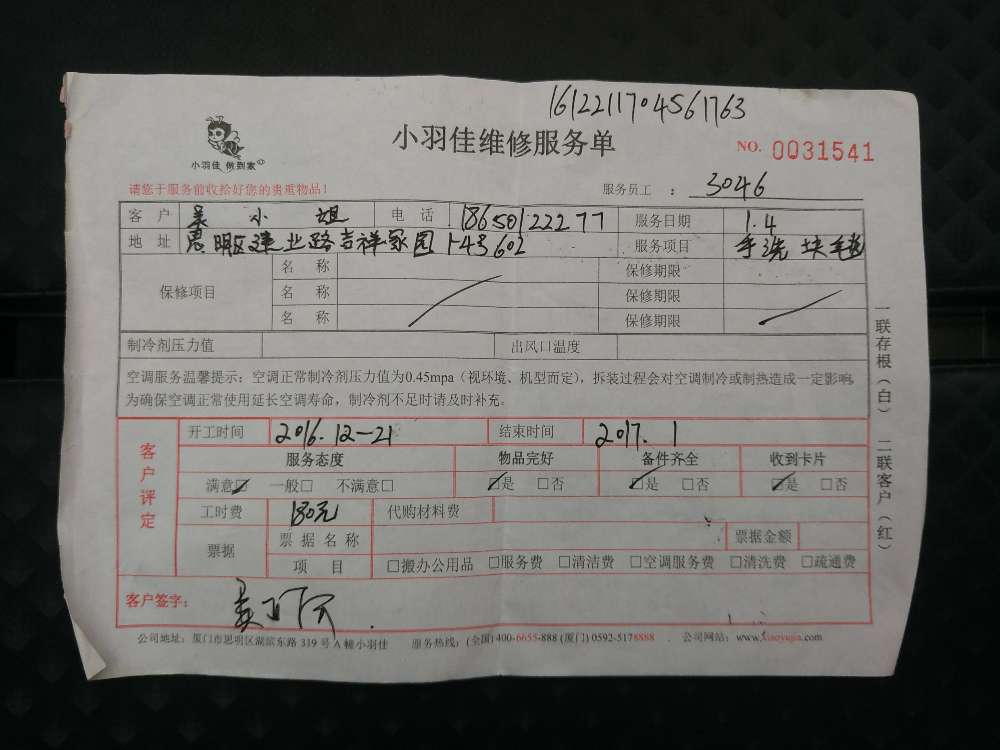 1612211704561763
小羽佳 做到家
小羽佳维修服务单
NO. 0031541
请您于服务前收给好您的贵重物品！
服务员工 ： 3046
客 户 吴小姐 电 话 18650122277 服务日期 1.4
地 址 思明区建业路吉祥家园 602 服务项目 手洗 毯
保修项目 名 称 保修期限
名 称 保修期限
名 称 保修期限
制冷剂压力值 出风口温度
空调服务温馨提示：空调正常制冷剂压力值为0.45mpa（视环境、机型而定），拆装过程会对空调制冷或制热造成一定影响
为确保空调正常使用延长空调寿命，制冷剂不足时请及时补充。
客户评定
开工时间 2016.12-21 结束时间 2017. 1
服务态度 物品完好 备件齐全 收到卡片
满意☑ 一般□ 不满意□ ☑是 □否 ☑是 □否 ☑是 □否
工时费 180元 代购材料费
票据 票据名称 票据金额
项 目 □搬办公用品 □服务费 □清洁费 □空调服务费 □清洗费 □疏通费
客户签字：
公司地址：厦门市思明区湖滨东路 319 号 A 幢小羽佳 服务热线：(全国) 400-6655-888 (厦门) 0592-5178888 . 公司网站：www.xiaoyujia.com
一联存根（白） 二联客户（红）